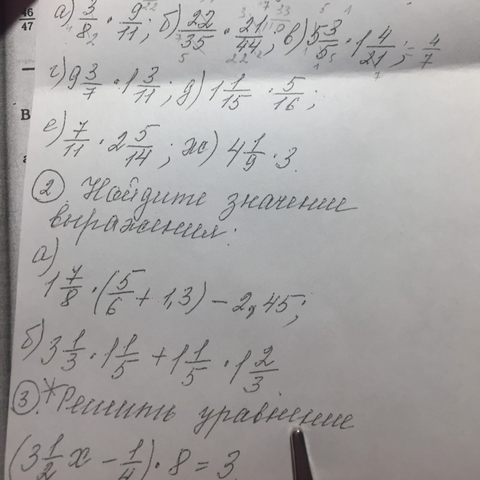 46/47
а) 3/8 · 9/11; б) 22/35 · 21/44; в) 5 3/5 · 1 4/21; = 4/7
г) 9 3/7 · 1 3/11; д) 1 1/15 · 5/16;
е) 7/11 · 2 5/14; ж) 4 1/9 · 3.
② Найдите значении
выражения:
а)
1 7/8 · (5/6 + 1,3) – 2,45;
б) 3 1/3 · 1 1/5 + 1 1/5 · 1 2/3
③* Решить уравнение
(3 1/2 x – 1/4) · 8 = 3